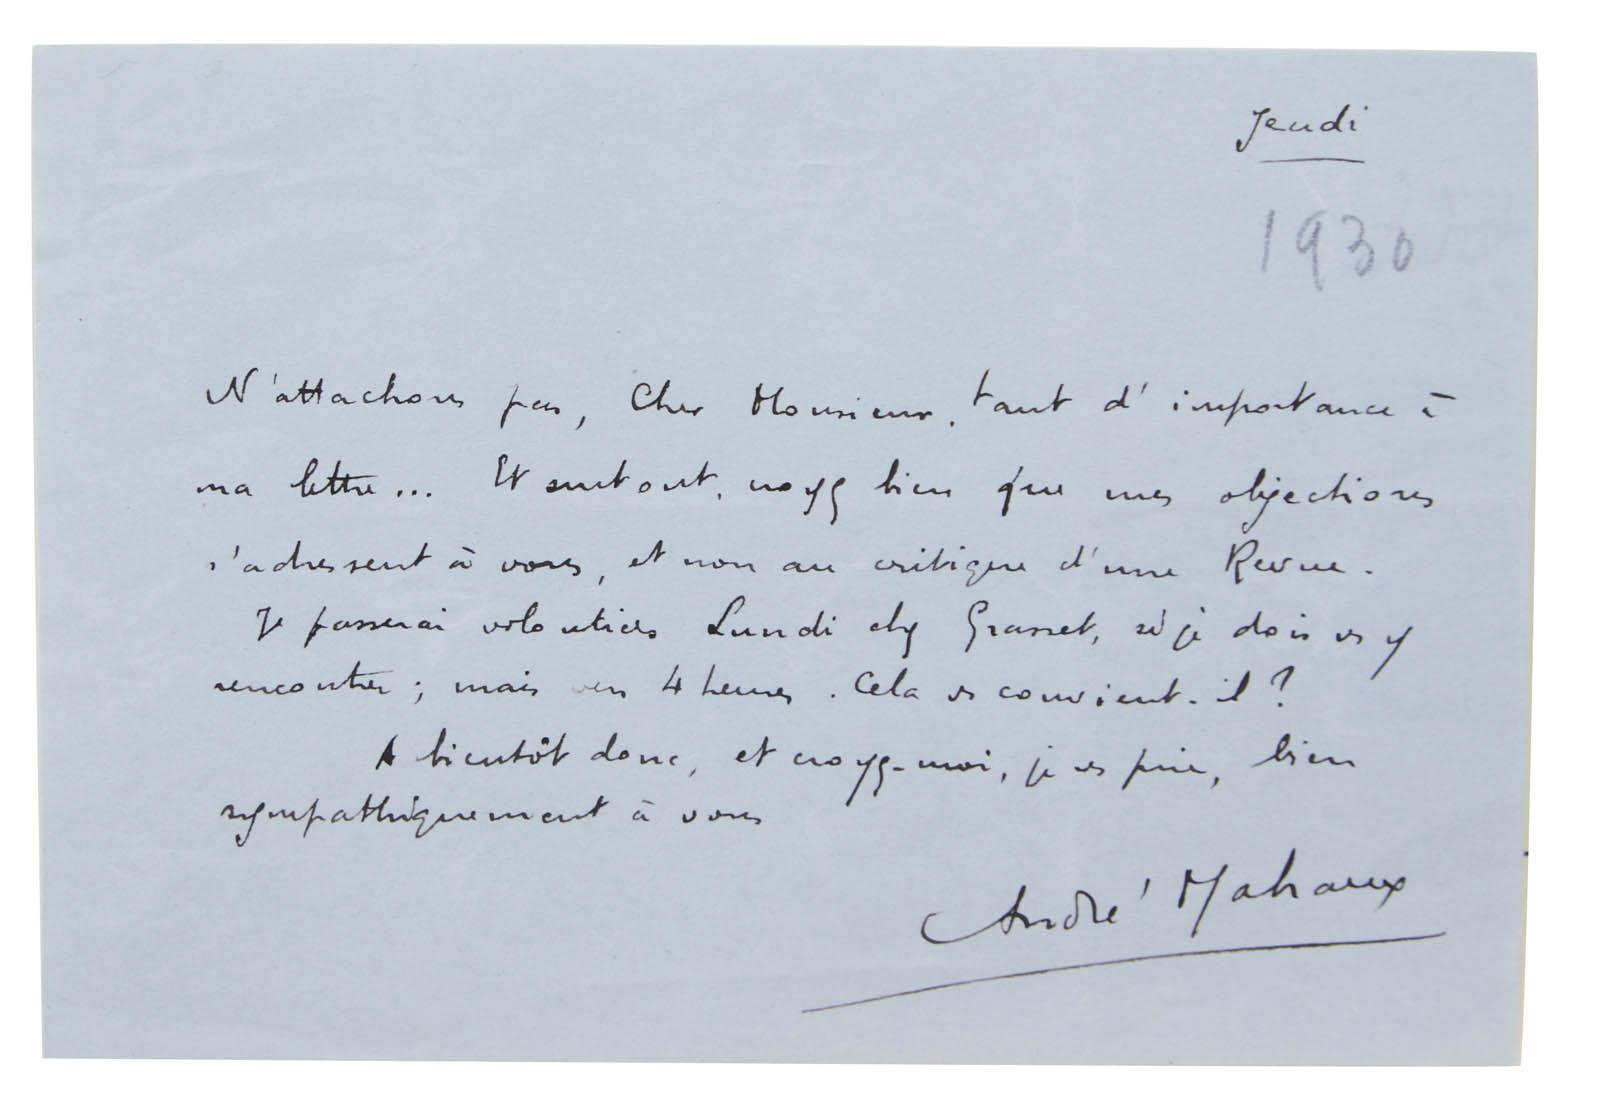 Jeudi
1930
N'attachons pas, Cher Monsieur, tant d'importance à
ma lettre... Et surtout, croyez bien que mes objections
s'adressent à vous, et non au critique d'une Revue.
Je passerai volontiers Lundi chez Grasset, si je dois vs y
rencontrer ; mais vers 4 heures. Cela vs convient-il ?
A bientôt donc, et croyez-moi, je vs prie, bien
sympathiquement à vous
André Malraux